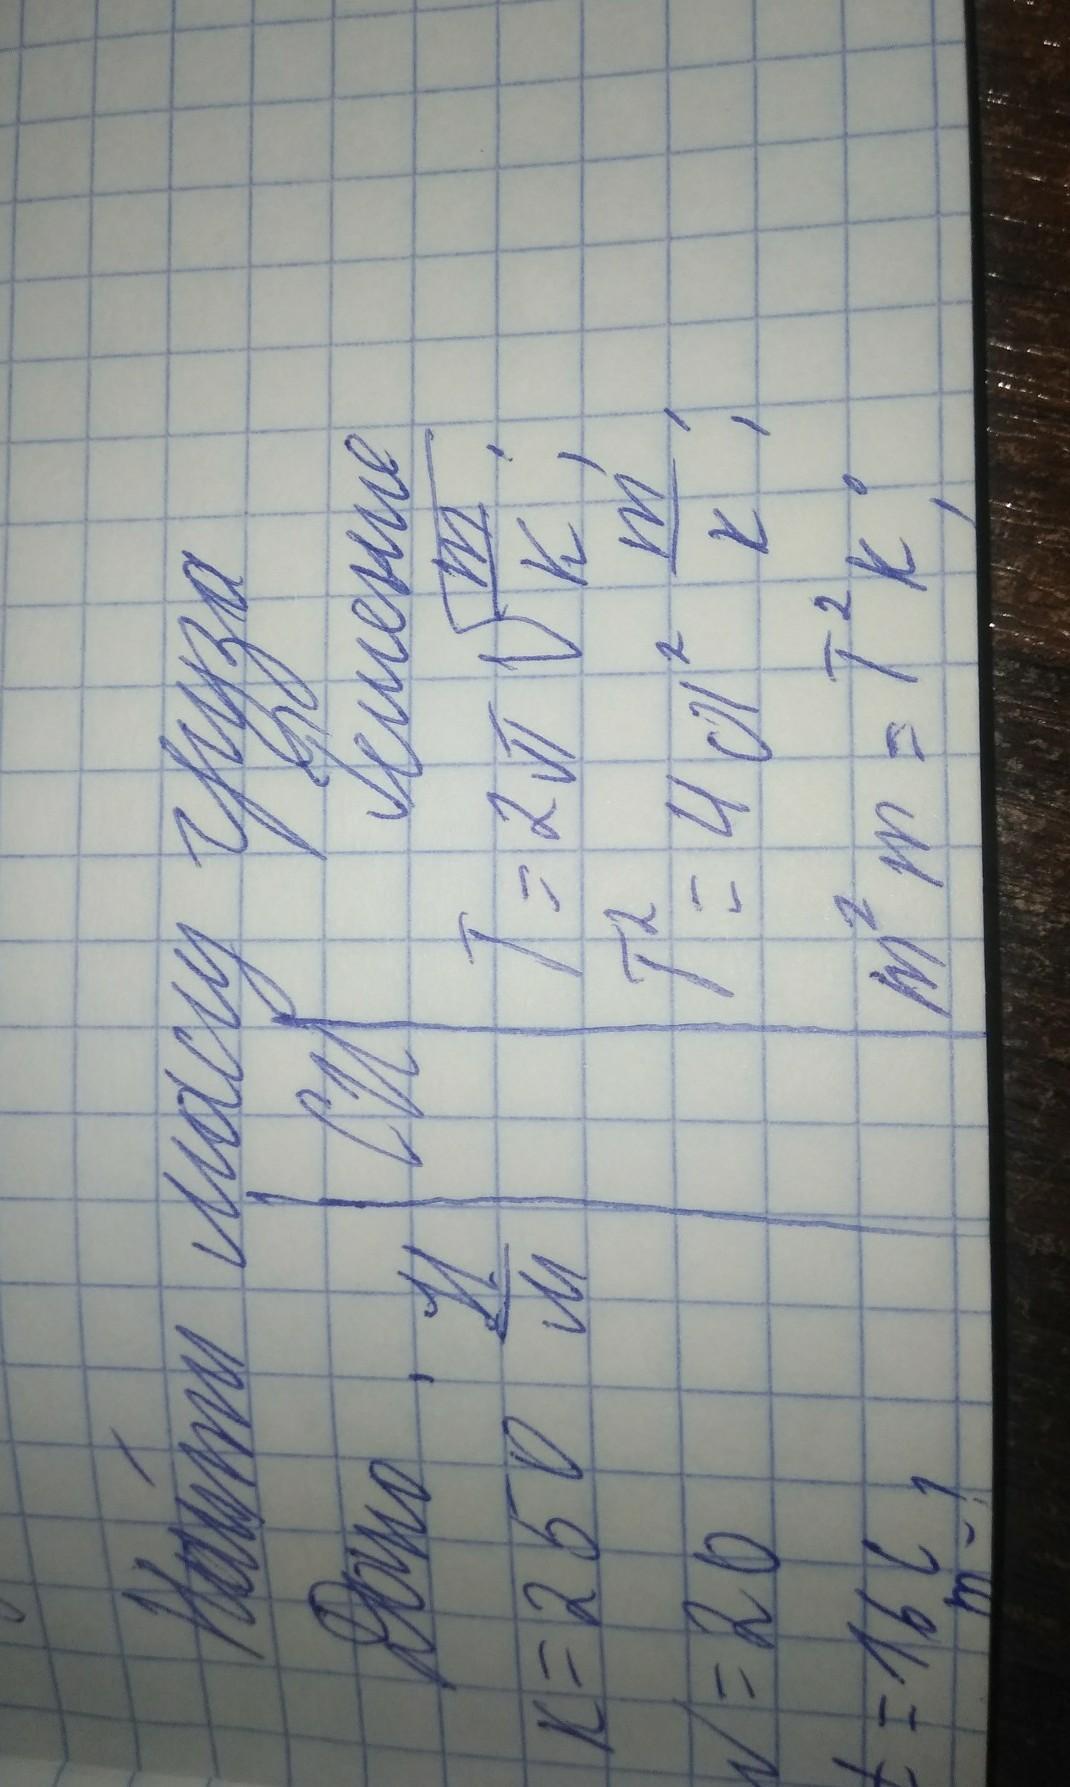 Найти массу груза
Дано: СИ Решение
k = 250 Н/м
T = 2π√m/k;
N = 20
T² = 4π² m/k;
t = 16 с
π² m = T² k;
m - ?